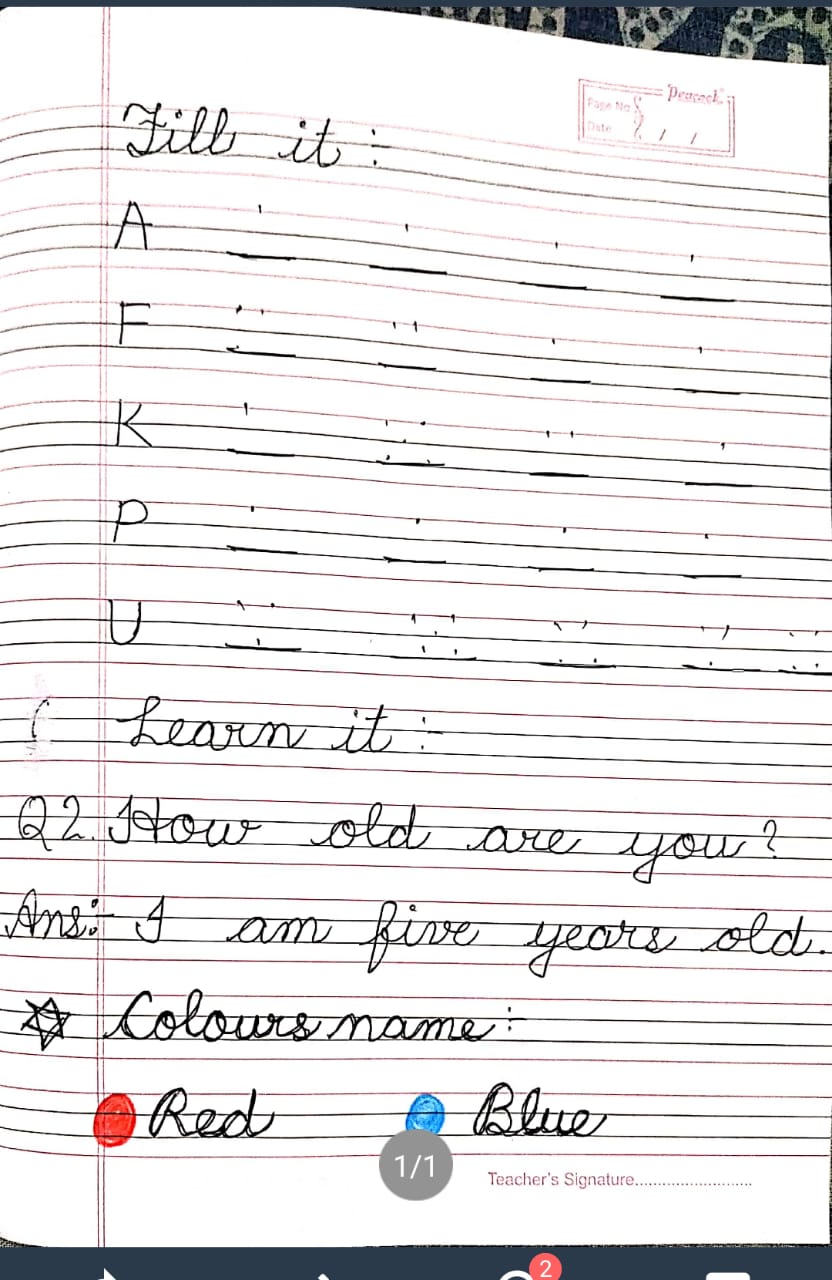 Peacock
Page No.
Date / /
Fill it :
A
F
K
P
U
Learn it :-
Q2. How old are you?
Ans:- I am five years old.
☆ Colours name :-
Red Blue
1/1
Teacher's Signature..............................
2